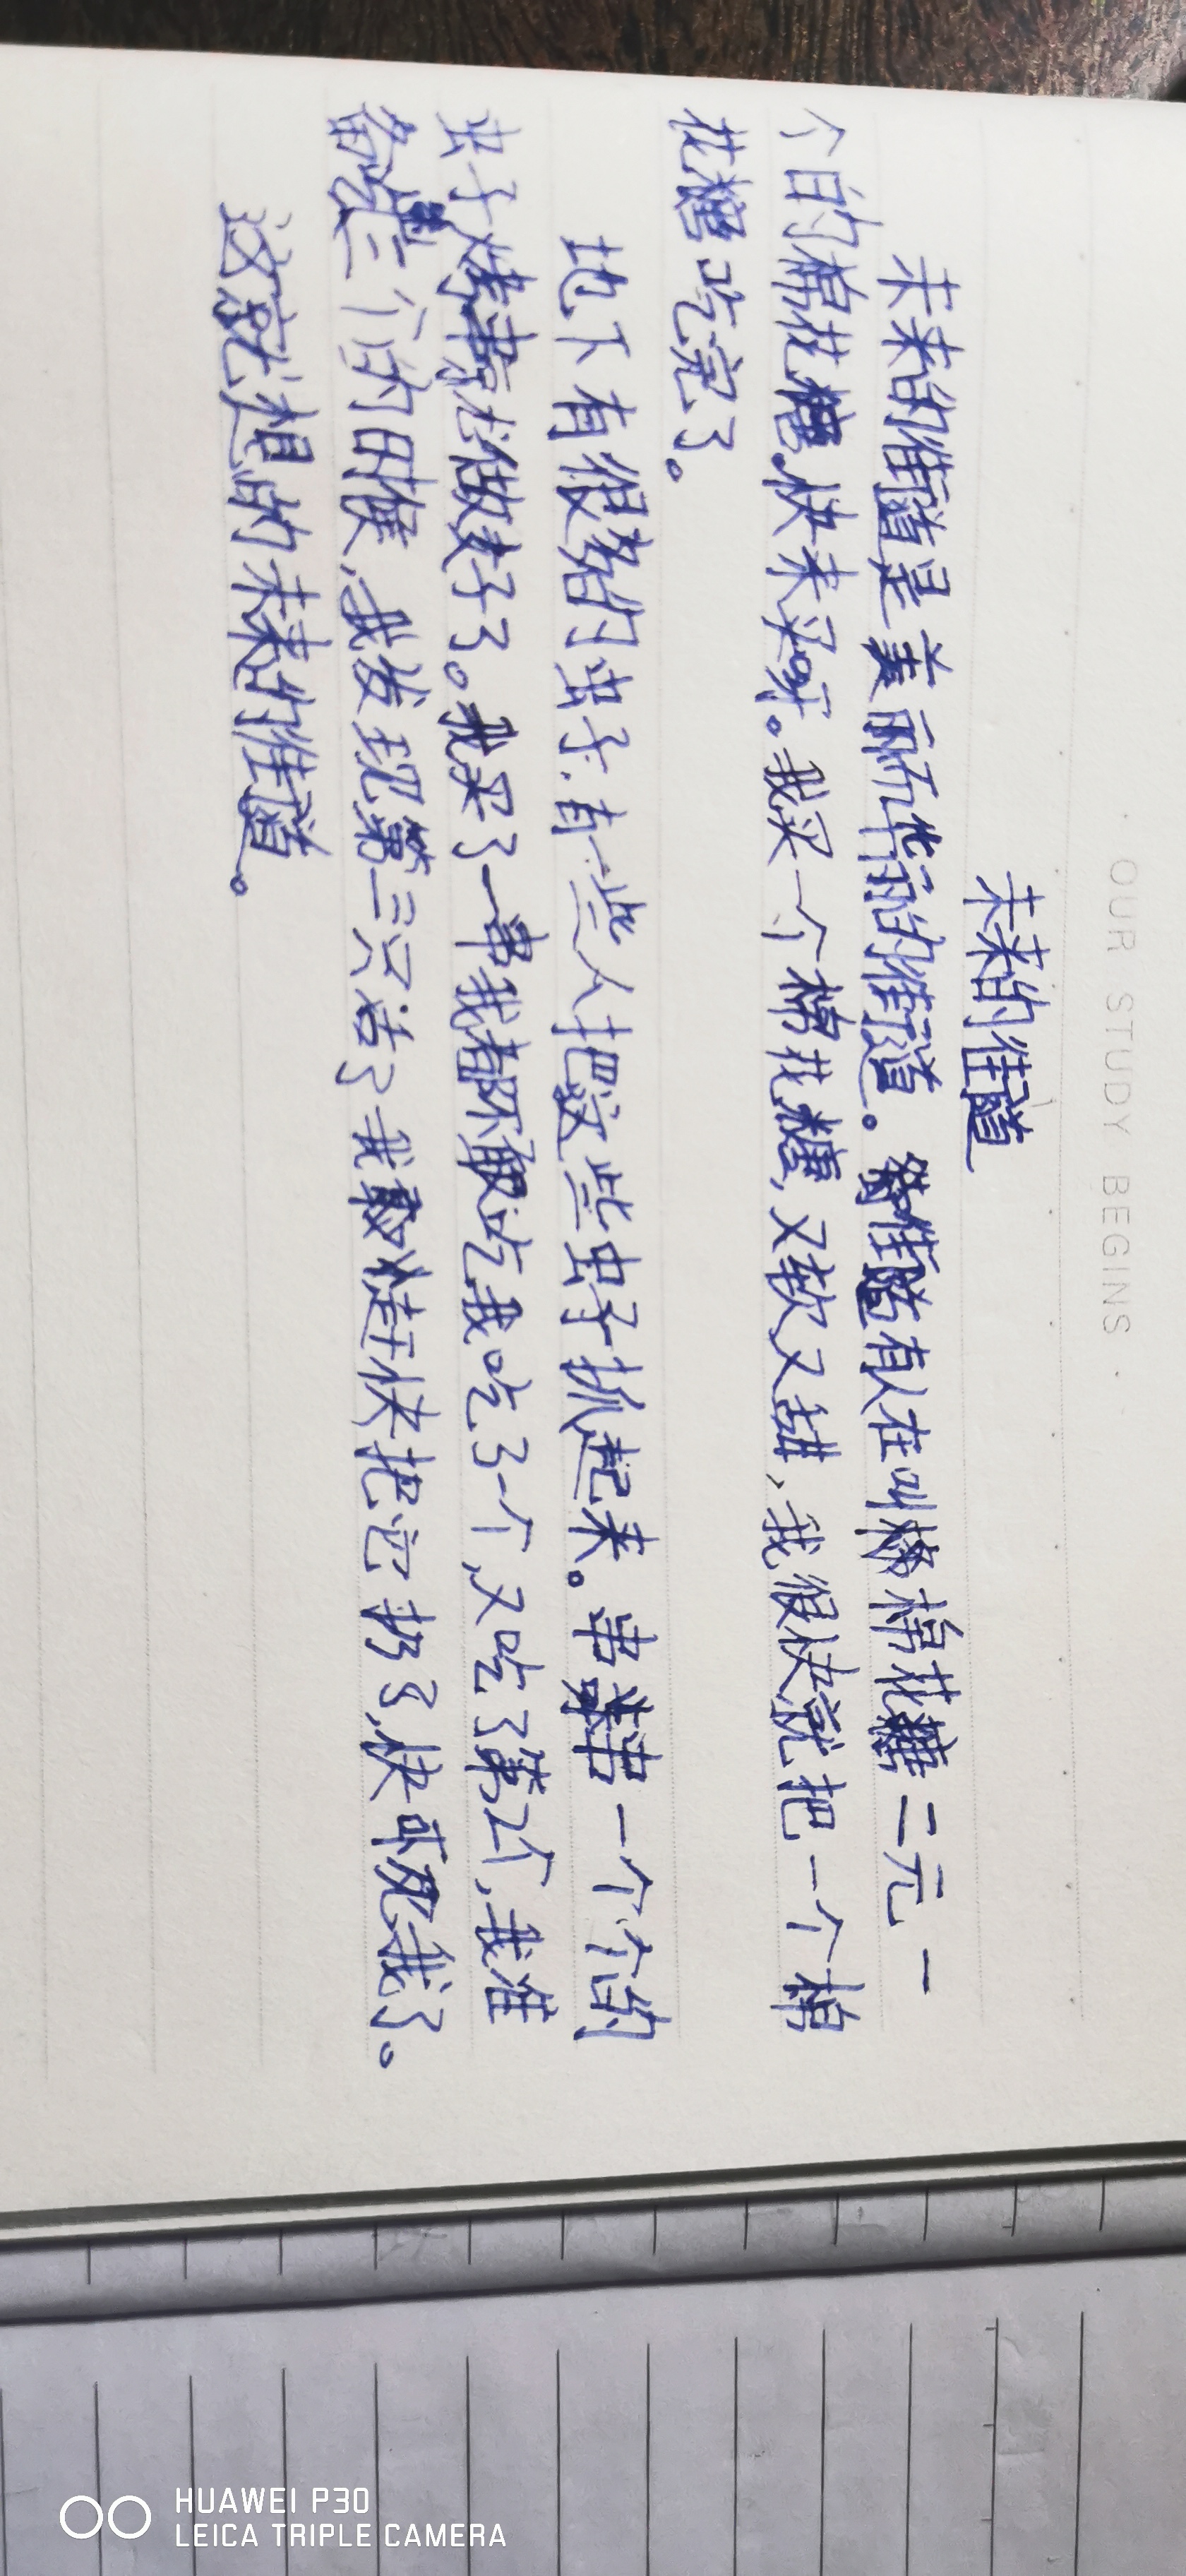 OUR STUDY BEGINS
未来的街道
未来的街道是美丽华丽的街道。街道有人在叫棉花糖二元一
个白的棉花糖.快来买呀。我买一个棉花糖,又软又甜,我很快就把一个棉
花糖吃完了。
地下有很多的虫子.有一些人把这些虫子抓起来。串一个个的
虫子烤串就做好了。我买了一串我都不敢吃我吃了一个,又吃了第2个,我准
备吃三个的时候,我发现第三只活了我赶快把它扔了,快吓死我了。
这就是想的未来的街道。
HUAWEI P30
LEICA TRIPLE CAMERA